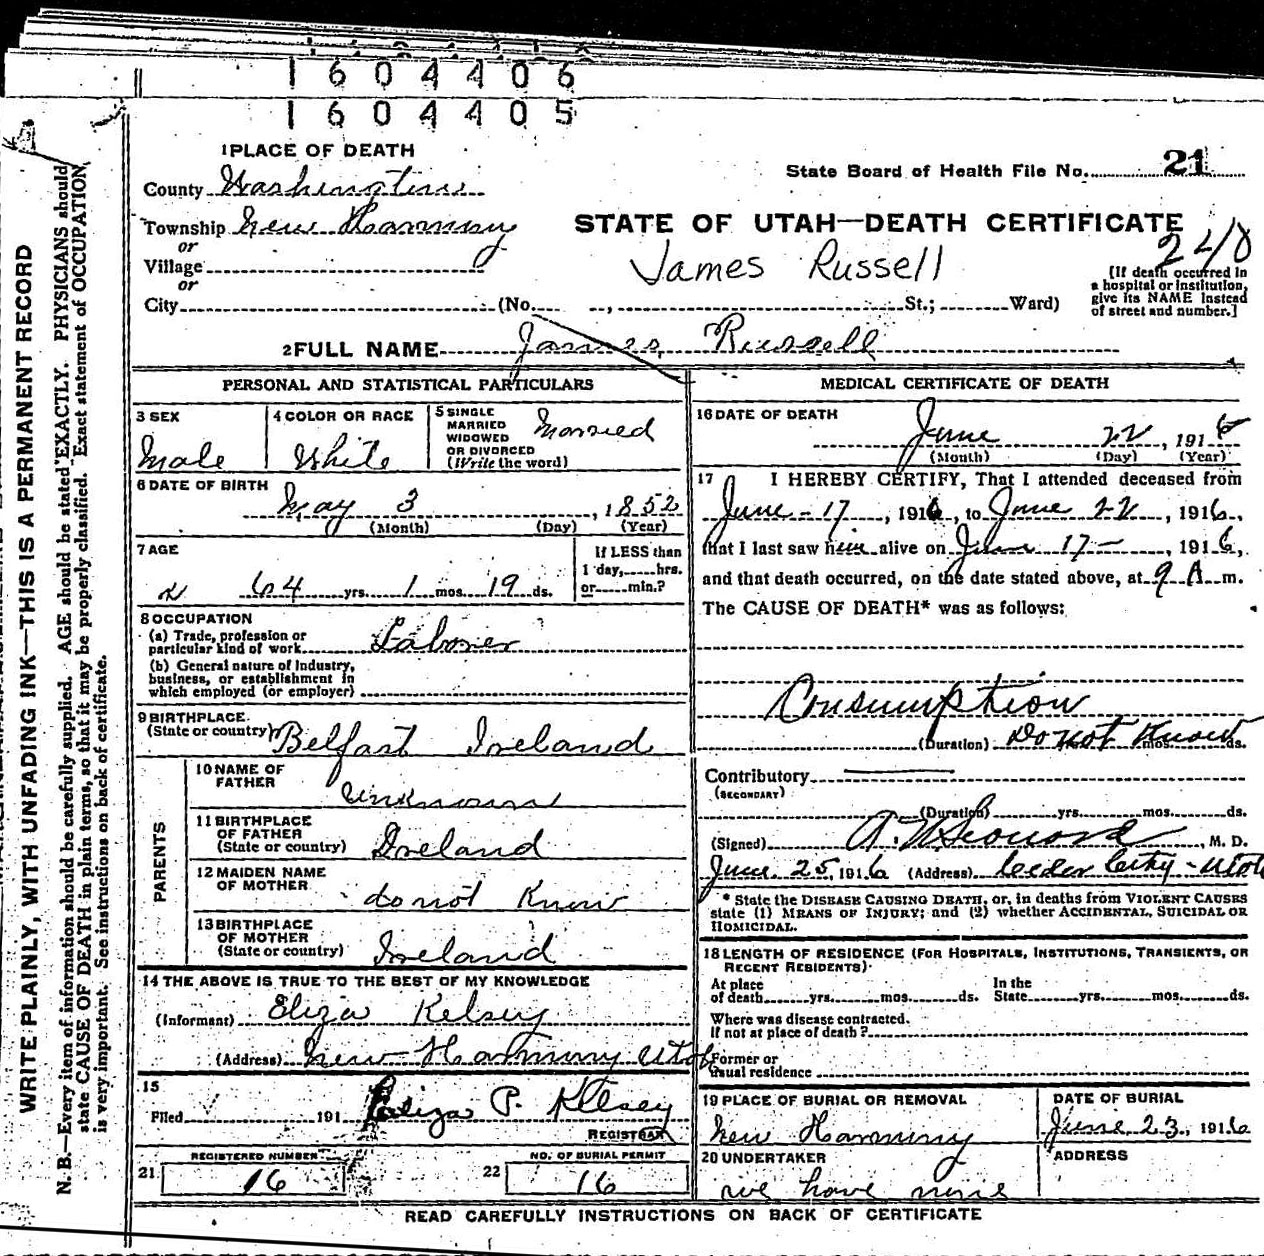 1604406
1604405
1 PLACE OF DEATH
State Board of Health File No. 21
County Washington
Township New Harmony
STATE OF UTAH—DEATH CERTIFICATE
or
Village
240
James Russell
or
City (No. , St.; Ward)
[If death occurred in
a hospital or institution,
give its NAME instead
of street and number.]
2 FULL NAME James Russell
PERSONAL AND STATISTICAL PARTICULARS
3 SEX
Male
4 COLOR OR RACE
White
5 SINGLE
MARRIED
WIDOWED
OR DIVORCED
(Write the word)
Married
6 DATE OF BIRTH
May 3 , 1852
(Month) (Day) (Year)
7 AGE
64 yrs. 1 mos. 19 ds.
If LESS than
1 day, hrs.
or min.?
8 OCCUPATION
(a) Trade, profession or
particular kind of work Laborer
(b) General nature of industry,
business, or establishment in
which employed (or employer)
9 BIRTHPLACE
(State or country) Belfast Ireland
PARENTS
10 NAME OF
FATHER
Unknown
11 BIRTHPLACE
OF FATHER
(State or country) Ireland
12 MAIDEN NAME
OF MOTHER
do not Know
13 BIRTHPLACE
OF MOTHER
(State or country) Ireland
14 THE ABOVE IS TRUE TO THE BEST OF MY KNOWLEDGE
(Informant) Eliza Kelsey
(Address) New Harmony Utah
15
Filed 191 Eliza P. Kelsey
REGISTRAR
21 REGISTERED NUMBER
16
22 NO. OF BURIAL PERMIT
16
MEDICAL CERTIFICATE OF DEATH
16 DATE OF DEATH
June 22 , 1916
(Month) (Day) (Year)
17 I HEREBY CERTIFY, That I attended deceased from
June - 17 , 1916, to June 22 , 1916,
that I last saw him alive on June 17 - , 1916,
and that death occurred, on the date stated above, at 9 A m.
The CAUSE OF DEATH* was as follows:
Consumption
(Duration) Do not Know mos. ds.
Contributory
(SECONDARY)
(Duration) yrs. mos. ds.
(Signed) , M. D.
June 25, 1916 (Address) Ceder City - Utah
* State the DISEASE CAUSING DEATH, or, in deaths from VIOLENT CAUSES
state (1) MEANS OF INJURY; and (2) whether ACCIDENTAL, SUICIDAL OR
HOMICIDAL.
18 LENGTH OF RESIDENCE (FOR HOSPITALS, INSTITUTIONS, TRANSIENTS, OR
RECENT RESIDENTS)
At place
of death yrs. mos. ds.
In the
State yrs. mos. ds.
Where was disease contracted.
If not at place of death?
Former or
usual residence
19 PLACE OF BURIAL OR REMOVAL
New Harmony
DATE OF BURIAL
June 23, 1916
20 UNDERTAKER
we have none
ADDRESS
READ CAREFULLY INSTRUCTIONS ON BACK OF CERTIFICATE
WRITE PLAINLY, WITH UNFADING INK—THIS IS A PERMANENT RECORD
N. B.—Every item of information should be carefully supplied. AGE should be stated EXACTLY. PHYSICIANS should
state CAUSE OF DEATH in plain terms, so that it may be properly classified. Exact statement of OCCUPATION
is very important. See instructions on back of certificate.